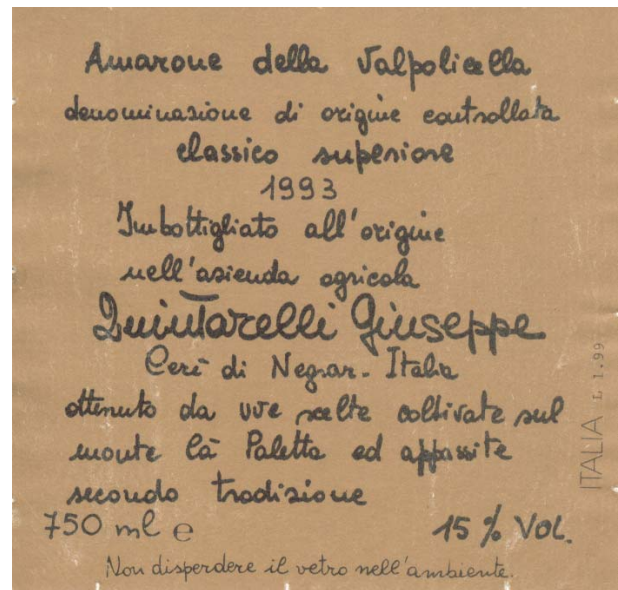 Amarone della Valpolicella
denominazione di origine controllata
classico superiore
1993
Imbottigliato all'origine
nell'azienda agricola
Quintarelli Giuseppe
Cerè di Negrar - Italia
ottenuto da uve scelte coltivate sul
monte Cà Paletta ed appassite
secondo tradizione
750 ml e
15 % VOL.
Non disperdere il vetro nell'ambiente.
ITALIA L 1.99